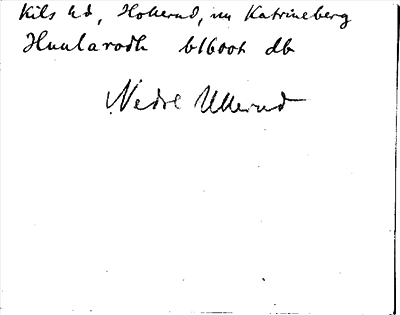 Kils hd, Hollerud, nu Katrineberg
Hunlarodh b1600t db
Nedre Ullerud